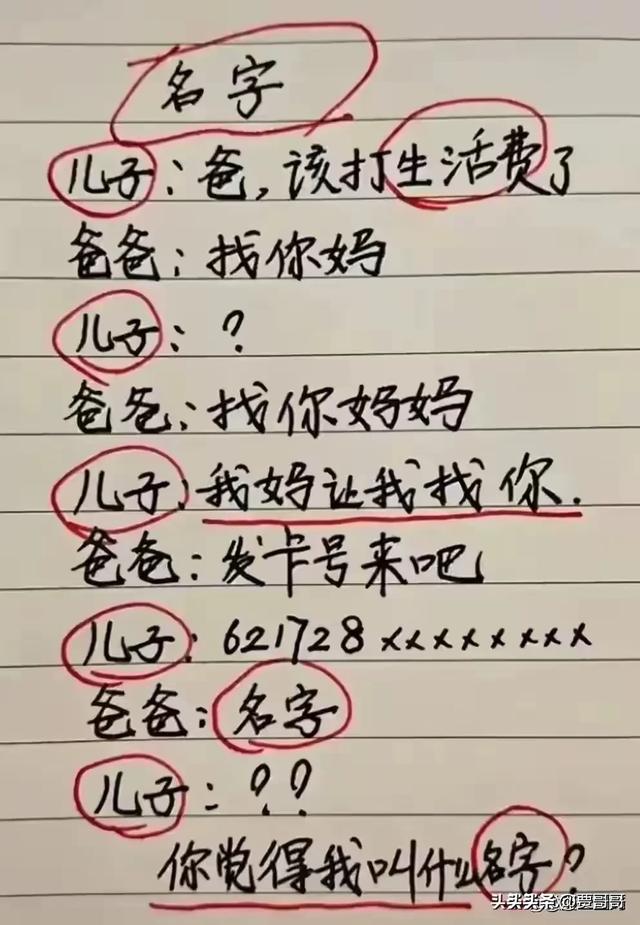 名字
儿子：爸，该打生活费了
爸爸：找你妈
儿子：？
爸爸：找你妈妈
儿子：我妈让我找你.
爸爸：发卡号来吧
儿子：621728xxxxxxxx
爸爸：名字
儿子：？？
你觉得我叫什么名字？
头头条条@贾哥哥